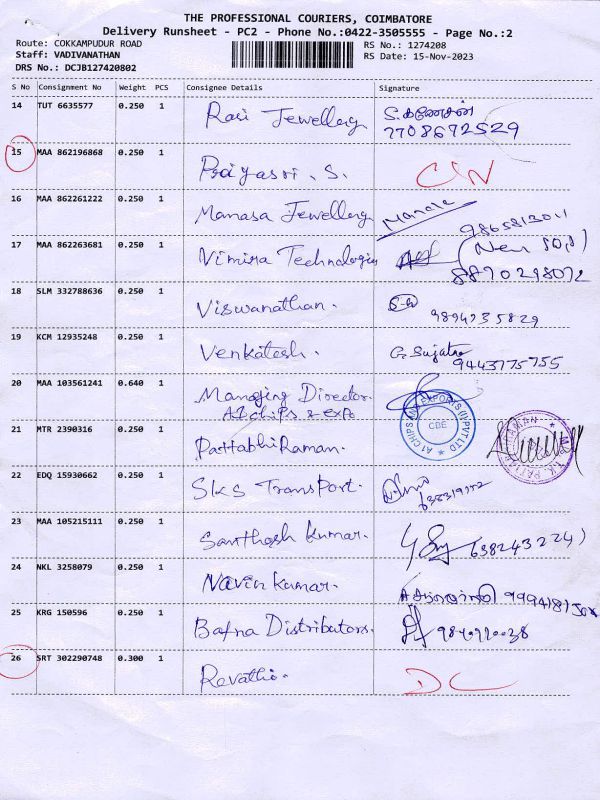 THE PROFESSIONAL COURIERS, COIMBATORE
Delivery Runsheet - PC2 - Phone No.:0422-3505555 - Page No.:2
Route: COKKAMPUDUR ROAD RS No.: 1274208
Staff: VADIVANATHAN RS Date: 15-Nov-2023
DRS No.: DCJB127420802
S No Consignment No Weight PCS Consignee Details Signature
14 TUT 6635577 0.250 1 Rasi Jewellery S.கணேசன்
7708672529
15 MAA 862196868 0.250 1 Priyasri . S.
16 MAA 862261222 0.250 1 Manasa Jewellery
17 MAA 862263681 0.250 1 Vimisa Technologies
8870298072
18 SLM 332788636 0.250 1 Viswanathan.
9894735829
19 KCM 12935248 0.250 1 Venkatesh. G. Sujatha
9443775755
20 MAA 103561241 0.640 1 Managing Director.
A1 chips & expo
A1 CHIPS EXPORTS (I) PVT LTD
CBE
21 MTR 2390316 0.250 1 PattabhiRaman.
22 EDQ 15930662 0.250 1 SKS Transport.
23 MAA 105215111 0.250 1 Santhosh Kumar.
24 NKL 3258079 0.250 1 Navin Kumar.
25 KRG 150596 0.250 1 Bafna Distributors.
26 SRT 302290748 0.300 1 Revathi. DC